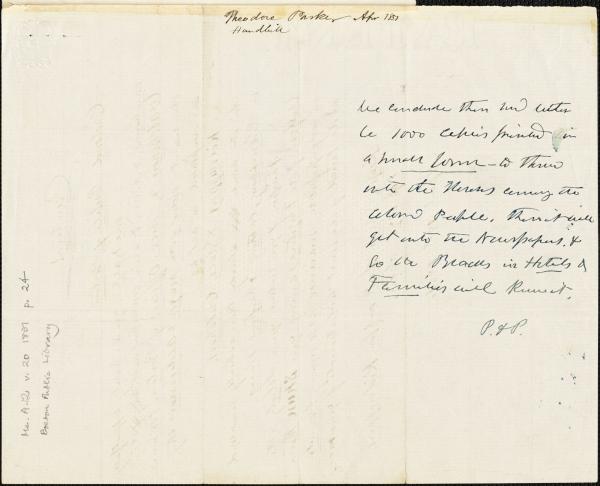 Theodore Parker Apr 1851
Handbill
We conclude there had better
be 1000 copies printed in
a small form - to throw
into the Houses among the
colored People. Then it will
get into the Newspapers. &
so the Blacks in Hotels &
Families will
P. & P.
Ms. A.1.2 v. 20 1851 p. 24
Boston Public Library